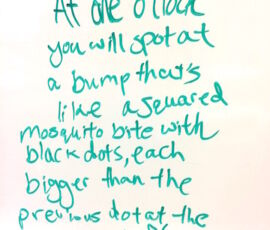 At one o'clock
you will spot at
a bump that's
like a squared
mosquito bite with
black dots, each
bigger than the
previous dot at the